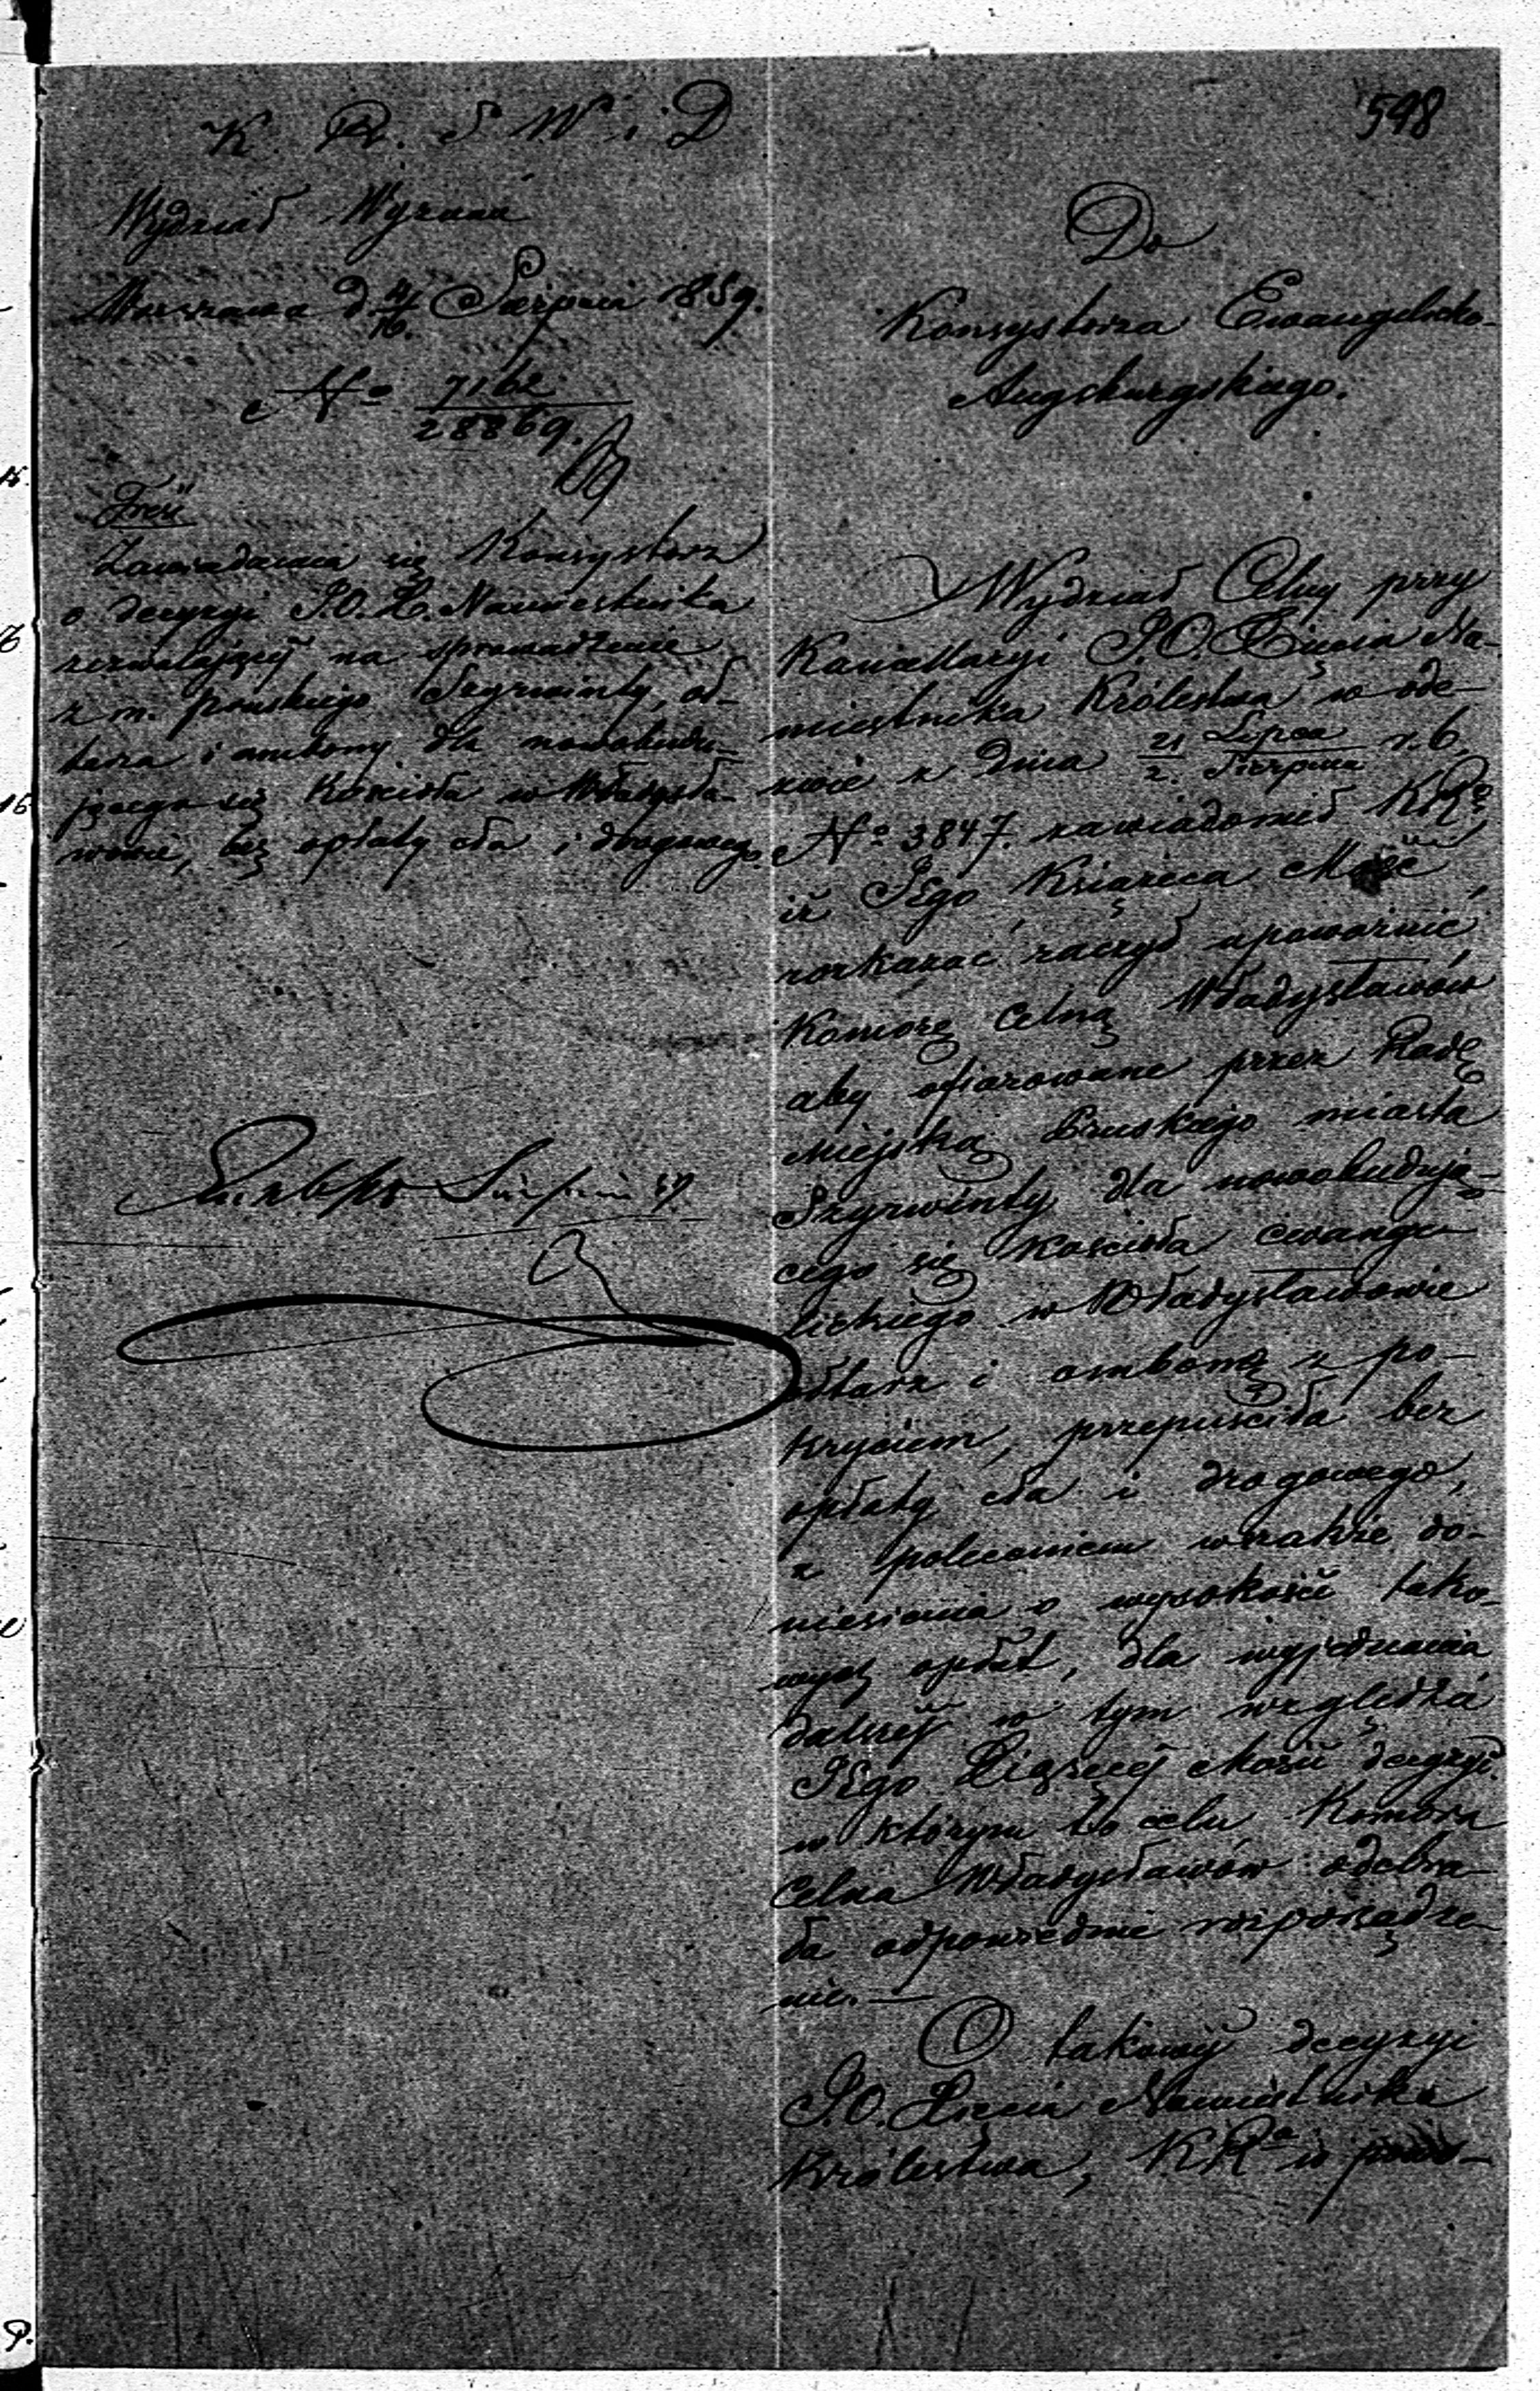 598
K. R. S. W. i D
Wydział Wyznań
Warszawa d 4/16. Sierpnia 1859.
No 7162/28869.
Treść
Zawiadamia się Konsystorz
o decyzyi J.O. X. Namiestnika
zezwalającej na sprowadzenie
z m. pruskiego Szyrwinty, oł-
tarza i ambony dla nowobudu-
jącego się Kościoła w Władysła-
wowie, bez opłaty cła i drogowego.
Sierpnia 59.
Do
Konsystorza Ewangelicko-
Augsburgskiego.
Wydział Celny przy
Kancellaryi J.O. Xięcia Na-
miestnika Królestwa, w ode-
zwie z dnia 21 Lipca/2. Sierpnia r. b.
No 3847. zawiadomił KRą
iż JEgo Książęca Mość
rozkazać raczył upoważnić
Komorę Celną Władysławów
aby ofiarowane przez Radę
Miejską Pruskiego miasta
Szyrwinty dla nowobudują-
cego się Kościoła ewange-
lickiego w Władysławowie
ołtarz i ambonę z po-
kryciem, przepuściła bez
opłaty cła i drogowego,
z poleceniem wszakże do-
niesienia o wysokości tako-
wych opłat, dla wyjednania
dalszej w tym względzie
JEgo Xiążęcej Mości decyzyi.
w którym to celu Komora
Celna Władysławów odebra-
ła odpowiednie rozporządze-
nie. —
O takowej decyzyi
J.O. Xięcia Namiestnika
Królestwa, KRa w powo-